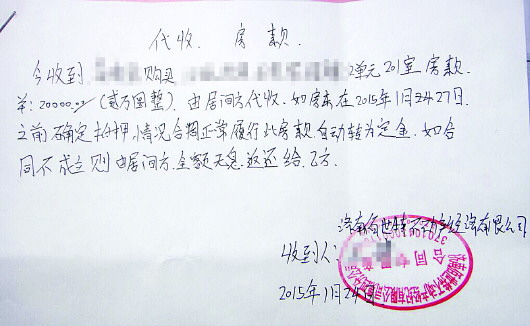 代收.房款.
今收到 购买 2单元201室房款
￥:20000.00(贰万圆整).由居间方代收.如房东在2015年1月24-27日.
之前确定 押.情况合同正常履行此房款自动转为定金.如合
同不成立则由居间方.全额无息.返还给.乙方.
济南 世 不动产经 有限公司
收到人:
合同专用章
2015年1月24日.